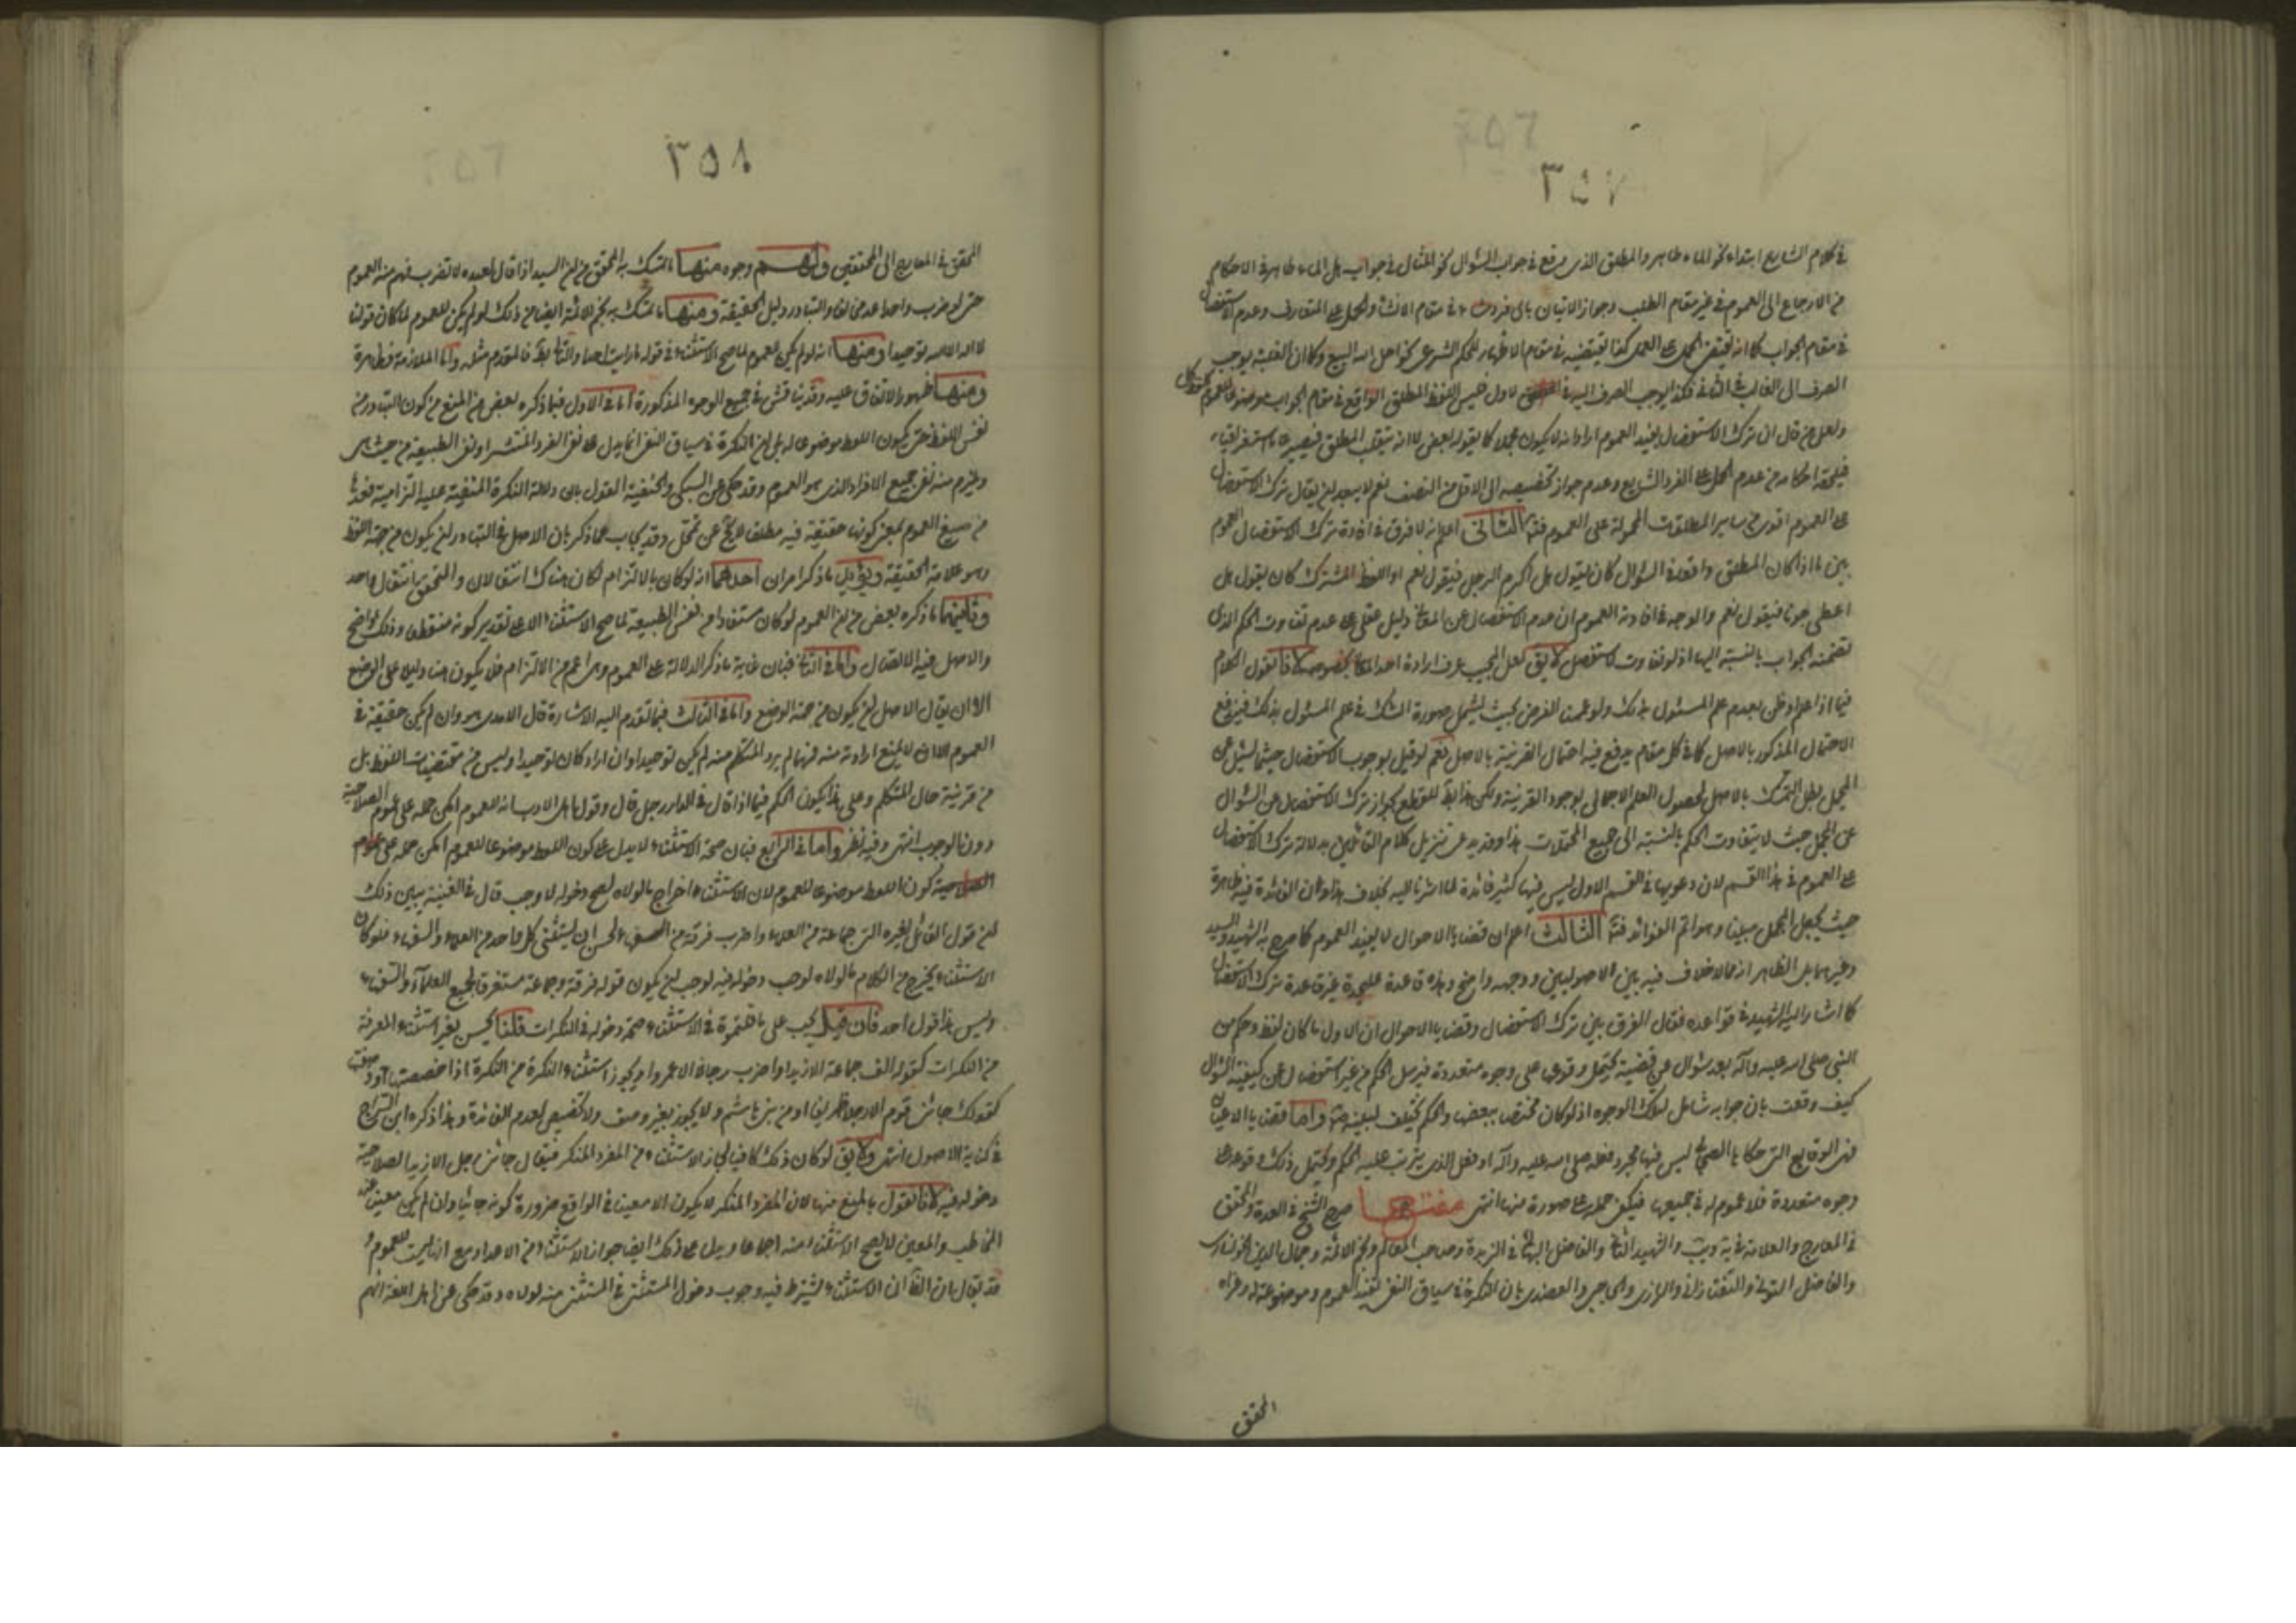 ٣٥٧
في كلام الشارع ابتداء نحو الماء طاهر والمطلق الذي وقع في جواب السؤال نحو المثال في جواب هل الماء طاهر في الاحكام
من الارجاع الى العموم في غير مقام الطلب وجواز الاتيان باي فرد شاء في مقام الانشاء والحمل على المتعارف وعدم الاستفصال
في مقام الجواب كما انه لا يقتضي الحمل على العموم كذا لا يقتضيه في مقام الاظهار للحكم الشرعي نحو احل الله البيع وكما ان الغلبة يوجب
الصرف الى الغالب في الثاني فكذا يوجب الصرف اليه في الاول فليس اللفظ المطلق الواقع في مقام الجواب موضوعا للعموم
ولعل من قال ان ترك الاستفصال يفيد العموم اراد انه لا يكون مجملا كما يقوله بعض لا انه ينقلب المطلق فيصير عاما استغراقيا
فيلحقه احكامه من عدم الحمل على الفرد الشايع وعدم جواز تخصيصه الى الاقل من النصف نعم لا يبعد ان يقال ترك الاستفصال
على العموم اقوى من ساير المطلقات المحمولة على العموم الثاني اعلم انه لا فرق في افادة ترك الاستفصال العموم
بين ما اذا كان المطلق واقعا في السؤال كان يقول هل اكرم الرجل فيقول نعم او اللفظ المشترك كان يقول هل
اعطي جونا فيقول نعم والوجه في افادته العموم ان عدم الاستفصال عن المعاني دليل عقلي على عدم تفاوت الحكم الذي
تضمنه الجواب بالنسبة اليها اذ لو تفاوت لاستفصل لا يق لعل المجيب عرف ارادة احد المعاني بخصوصه لانا نقول الكلام
فيما اذا علم او ظن بعدم علم المسئول بذلك ولو عممنا الفرض بحيث يشمل صورة الشك في علم المسئول بذلك فيدفع
الاحتمال المذكور بالاصل كما في كل مقام يدفع فيه احتمال القرينة بالاصل نعم لو قيل بوجوب الاستفصال حيثما يسئل عن
المجمل بطل التمسك بالاصل لحصول العلم الاجمالي بوجود القرينة ولكن هذا بط للقطع بجواز ترك الاستفصال عن السؤال
عن المجمل حيث لا يتفاوت الحكم بالنسبة الى جميع المحتملات هذا وقد يدعى تنزيل كلام القائلين بدلالة ترك الاستفصال
على العموم في هذا القسم لان دعويها في القسم الاول ليس فيها كثير فائدة لما اشرنا اليه بخلاف هذا فان الفائدة فيه ظاهرة
حيث يجعل المجمل مبينا وهو اتم الفوائد الثالث اعلم ان قضايا الاحوال لا يفيد العموم كما صرح به الشهيد والسيد
وغيرهما بل الظاهر انه مما لا خلاف فيه بين الاصوليين ووجهه واضح وهذه قاعدة عليحدة غير قاعدة ترك الاستفصال
كما اشار اليه الشهيد في قواعده فقال الفرق بين ترك الاستفصال وقضايا الاحوال ان الاول ما كان لفظ وحكم من
النبي صلى الله عليه وآله بعد سؤال عن قضية يحتمل وقوعها على وجوه متعددة فيرسل الحكم من غير استفصال عن كيفية السؤال
كيف وقعت فان جوابه شامل لتلك الوجوه اذ لو كان مختصا ببعضها والحكم يختلف لبينه واما قضايا الاعيان
فهي الوقايع التي حكاها الصحابي ليس فيها مجرد فعله صلى الله عليه وآله او فعل الذي يترتب عليه الحكم ويحتمل ذلك وقوعه على
وجوه متعددة فلا عموم له في جميعها فيكفي حمله على صورة منها انتهى مفتاح صرح الشيخ في العدة والمحقق
في المعارج والعلامة في يه ويب والشهيد الثاني والفاضل البهائي في الزبدة وصاحب المعالم ونجم الائمة وجمال الدين الخونساري
والفاضل التوني والتفتازاني والرازي والحاجبي والعضدي بان النكرة في سياق النفي تفيد العموم وموضوعة له وعزاه
المحقق
٣٥٨
المحقق في المعارج الى المحققين ولهم وجوه منها ما تمسك به المحقق من ان السيد اذا قال لعبده لا تضرب فهم منه العموم
حتى لو ضرب واحدا عد مخالفا والتبادر دليل الحقيقة ومنها ما تمسك به نجم الائمة ايضا من ذلك لو لم يكن للعموم لما كان قولنا
لا اله الا الله توحيدا ومنها انه لو لم يكن للعموم لما صح الاستثناء في قوله ما رايت احدا والتالي بط فالمقدم مثله واما الملازمة فظاهرة
ومنها ظهور الاتفاق عليه وقد يناقش في جميع الوجوه المذكورة اما في الاول فبما ذكره بعض من المنع من كون التبادر من
نفس اللفظ حتى يكون اللفظ موضوعا له بل ان النكرة في سياق النفي انما يدل على نفي الفرد المنتشر او نفي الطبيعة من حيث هي
ويلزم منه نفي جميع الافراد الذي هو العموم وقد حكي عن السبكي والحنفية القول بان دلالة النكرة المنفية عليه التزامية فعدها
من صيغ العموم بمعنى كونها حقيقة فيه مطلقا لا يخ عن تمحل وقد يجاب عما ذكر بان الاصل في التبادر ان يكون من جهة اللفظ
وهو علامة الحقيقة ويؤيد ما ذكر امران احدهما انه لو كان بالالتزام لكان هناك انتقالان والمتحقق انتقال واحد
وثانيهما ما ذكره بعض من ان العموم لو كان مستفادا من نفس الطبيعة لما صح الاستثناء الا على تقدير كونه منقطعا وذلك واضح
والاصل فيه الاتصال واما في الثاني فبان غاية ما ذكر الدلالة على العموم وهي اعم من الالتزام فلا يكون هنا دليلا على الوضع
الا ان يقال الاصل ان يكون من جهة الوضع واما في الثالث فبما تقدم اليه الاشارة قال الامدي هو وان لم يكن حقيقة في
العموم الا ان لا يمنع ارادته منه فمهما لم يرد المتكلم منه لم يكن توحيدا وان اراد كان توحيدا وليس من مقتضيات اللفظ بل
من قرينة حال المتكلم وعلى هذا يكون الحكم فيما اذا قال في الدار رجل قال وقول اهل الادب انه للعموم امكن حمله على عموم الصلاحية
دون الوجوب انتهى وفيه نظر واما في الرابع فبان صحة الاستثناء لا يدل على كون اللفظ موضوعا للعموم امكن حمله على عموم
الصلاحية كون اللفظ موضوعا للعموم لان الاستثناء اخراج ما لولاه لصح دخوله لا وجب قال في الغنية يبين ذلك
ان قول القائل لغيره الق جماعة من العلماء واضرب فرقة من السفهاء لحسن ان يستثنى كل واحد من العلماء والسفهاء فلو كان
الاستثناء يخرج من الكلام ما لولاه لوجب دخوله فيه لوجب ان يكون قوله فرقة وجماعة مستغرقا لجميع العلماء والسفهاء
وليس هذا قول احد فان قيل يجب على ما قلتموه في الاستثناء صحة دخوله في النكرات قلنا يحسن بغير استثناء المعرفة
من النكرات كقوله الق جماعة الا زيدا واضرب رجالا الا عمروا ويجوز استثناء النكرة من النكرة اذا خصصتها او وصفتها
كقولك جائني قوم الا رجلا ظريفا او من بني هاشم ولا يجوز بغير وصف ولا تخصيص لعدم الفائدة وهذا ذكره ابن السراج
في كتابه الاصول انتهى ولا يق لو كان ذلك كافيا لجاز الاستثناء من المفرد المنكر فيقال جائني رجل الا زيدا لصلاحية
دخوله فيه لانا نقول بالمنع منها لان المفرد المنكر لا يكون الا معينا في الواقع ضرورة كونه جائيا وان لم يكن معينا عند
المخاطب والمعين لا يصح الاستثناء منه اجماعا ويدل على ذلك ايضا جواز الاستثناء من الاعداد مع انها ليست للعموم و
قد يقال بان القا ان الاستثناء يشترط فيه وجوب دخول المستثنى في المستثنى منه لولاه وقد حكي عن اهل اللغة انهم